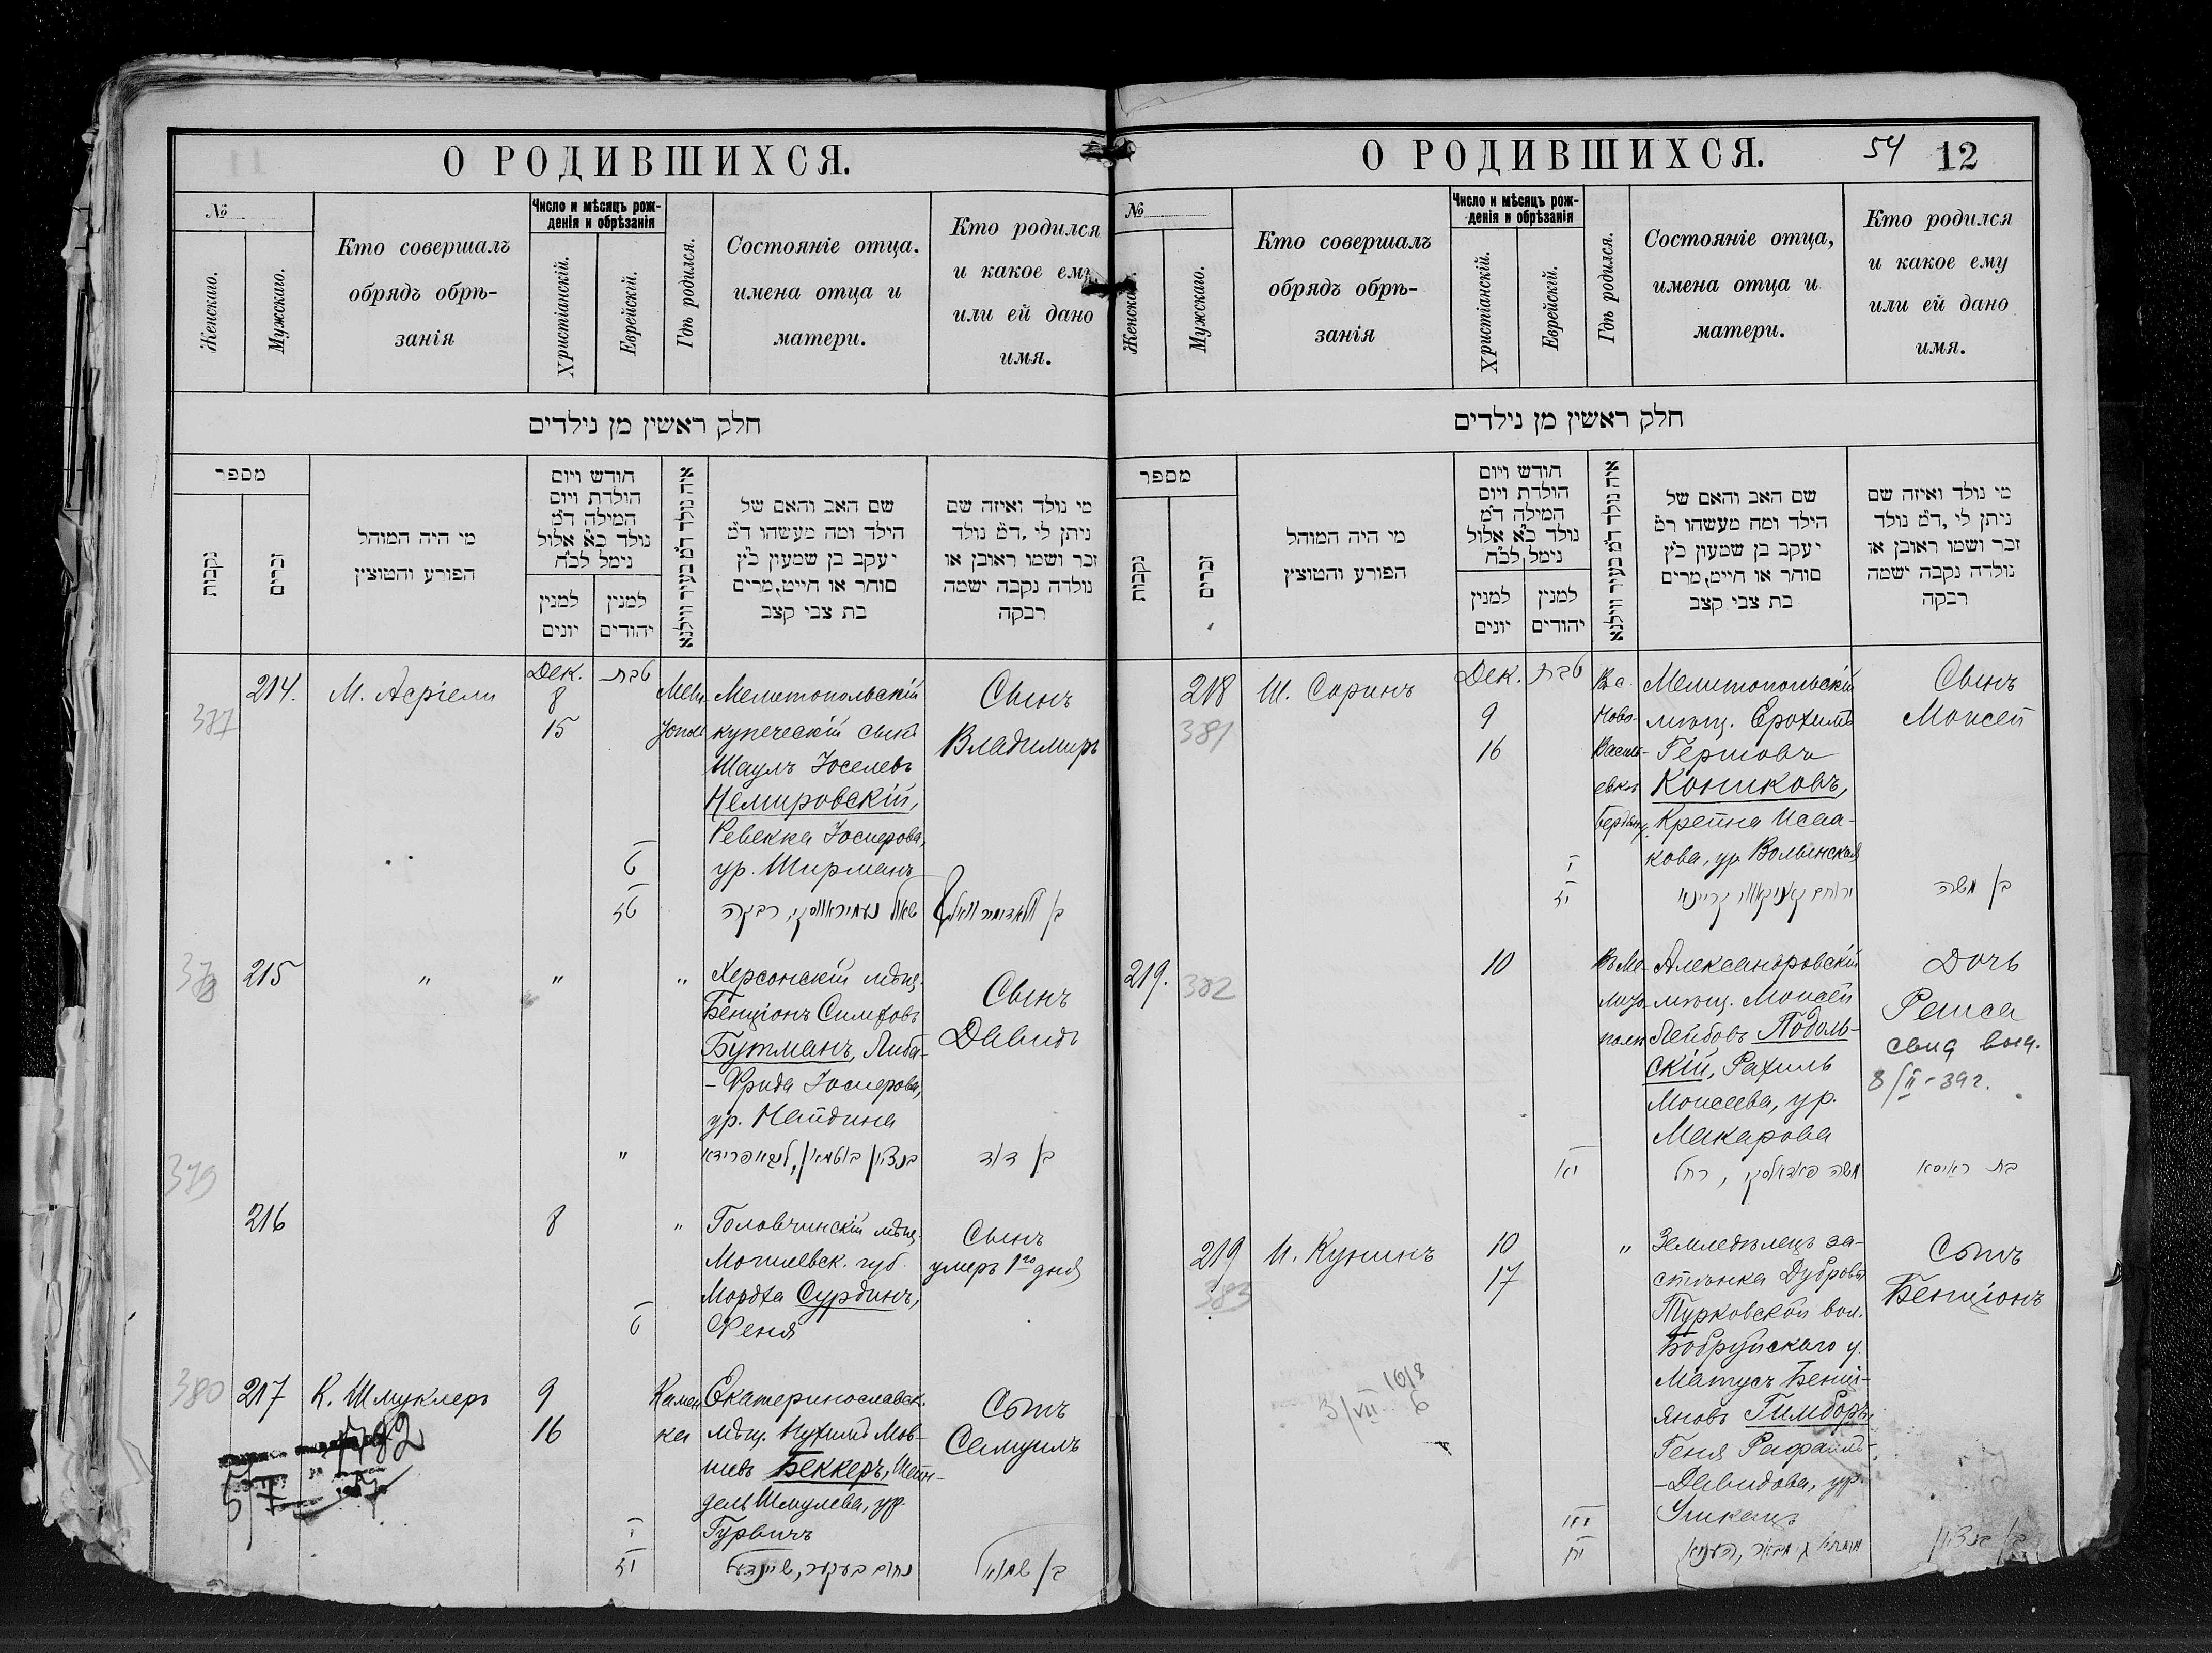 О РОДИВШИХСЯ.
№
Женскаго.
Мужскаго.
Кто совершалъ
обрядъ обрѣ-
занія
Число и мѣсяцъ рож-
денія и обрѣзанія
Христіанскій.
Еврейскій.
Гдѣ родился.
Состояніе отца.
имена отца и
матери.
Кто родился
и какое ему
или ей дано
имя.
חלק ראשין מן נילדים
מספר
נקבות
זכרים
מי היה המוהל
הפורע והמוצץ
חודש ויום
הולדת ויום
המילה ד"מ
נולד כ"א אלול
נימל לכ"ח
למנין
יונים
למנין
יהודים
איה נולד ד"מ בעיר ווילנא
שם האב והאם של
הילד ומה מעשהו ד"מ
יעקב בן שמעון כ"ץ
סוחר או חייט, מרים
בת צבי קצב
מי נולד ואיזה שם
ניתן לי, ד"מ נולד
זכר ושמו ראובן או
נולדה נקבה ישמה
רבקה
377
214.
М. Асріели
Дек.
8
15
טבת
ט
טז
Мели-
топол
Мелитопольскій
купеческій сынъ
Шаулъ Іоселевъ
Немировскій,
Ревекка Іосиерова,
ур. Ширманъ
רבקה
Сынъ
Владимиръ
215
"
"
"
Херсонскій мѣщ.
Бенціонъ Симховъ
Бутманъ, Либа-
-Фрида Іосиерова,
ур. Найдина
"
בנציון בוטמאן, ליבא פרידא
Сынъ
Давидъ
בן דוד
379
216
8
ט
"
Головчинскій мѣщ.
Могилевск. губ.
Мордха Сурдинъ,
Феня
Сынъ
умеръ 1го дня
380
217
К. Шмуклеръ
9
16
י
יז
Камен
ка
Екатеринославск.
мѣщ. Нухимъ Мов-
шевъ Беккеръ, Шейн-
дель Шмулева, ур.
Гурвичъ
נחום בעקער, שיינדעל
Сынъ
Самуилъ
בן שמואל
О РОДИВШИХСЯ.
54
12
№
Женскаго.
Мужскаго.
Кто совершалъ
обрядъ обрѣ-
занія
Число и мѣсяцъ рож-
денія и обрѣзанія
Христіанскій.
Еврейскій.
Гдѣ родился.
Состояніе отца,
имена отца и
матери.
Кто родился
и какое ему
или ей дано
имя.
חלק ראשין מן נילדים
מספר
נקבות
זכרים
מי היה המוהל
הפורע והמוצץ
חודש ויום
הולדת ויום
המילה ד"מ
נולד כ"א אלול
נימל לכ"ח
למנין
יונים
למנין
יהודים
איה נולד ד"מ בעיר ווילנא
שם האב והאם של
הילד ומה מעשהו ד"מ
יעקב בן שמעון כ"ץ
סוחר או חייט, מרים
בת צבי קצב
מי נולד ואיזה שם
ניתן לי, ד"מ נולד
זכר ושמו ראובן או
נולדה נקבה ישמה
רבקה
218
381
Ш. Соринъ
Дек.
9
16
טבת
י
יז
Ново-
Васил-
евка
Мелитопольскій
мѣщ. Ерохимъ
Гершовъ
Кошковъ,
Крейна Исаа-
кова, ур. Волынская
Сынъ
Моисей
בן משה
219.
382
10
יא
Въ Ме-
лито-
поли
Александровскій
мѣщ. Моисей
Лейбовъ Подоль-
скій, Рахиль
Моисеева, ур.
Макарова
משה פאדאלסקי, רחל
Дочь
Раиса
свид выд.
8/II-39г.
בת ראיסא
219
383
И. Кунинъ
10
17
יח
"
Земледѣлецъ за-
стѣнка Дубровы
Турковской вол.
Бобруйскаго у.
Матусъ Бенці-
яновъ Гимборъ,
Геня Рафаилъ-
-Давидова, ур.
Сынъ
Бенціонъ
בן בנציון